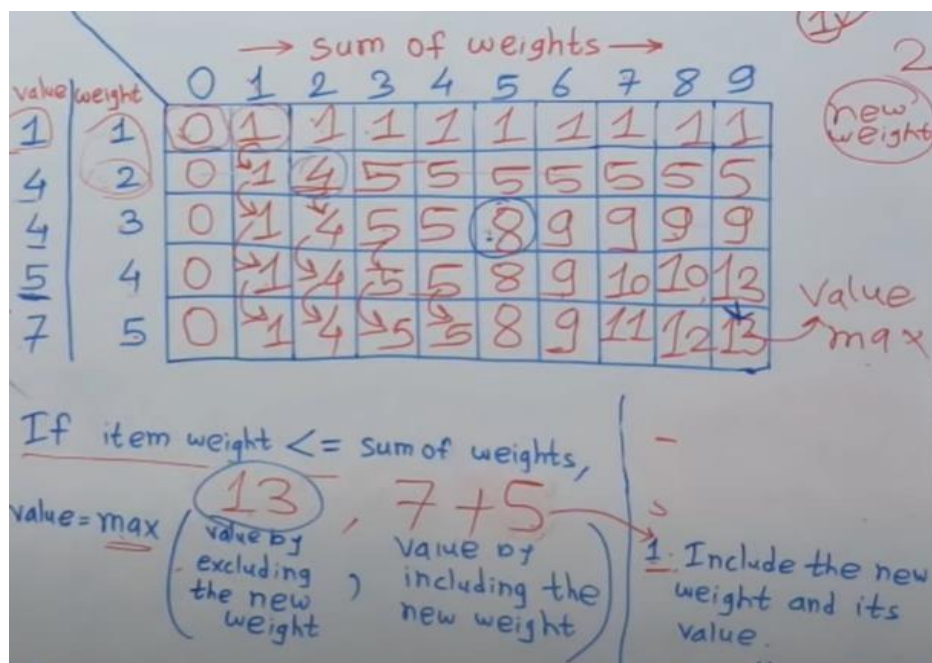 → sum of weights →
2
value weight 0 1 2 3 4 5 6 7 8 9
new weight
1 1 0 1 1 1 1 1 1 1 1 1
4 2 0 1 4 5 5 5 5 5 5 5
4 3 0 1 4 5 5 8 9 9 9 9
5 4 0 1 4 5 5 8 9 10 10 13
7 5 0 1 4 5 5 8 9 11 12 13
value
max
If item weight <= sum of weights,
value = max ( 13 , 7 + 5 )
value by excluding the new weight , value by including the new weight
1. Include the new
weight and its
value.